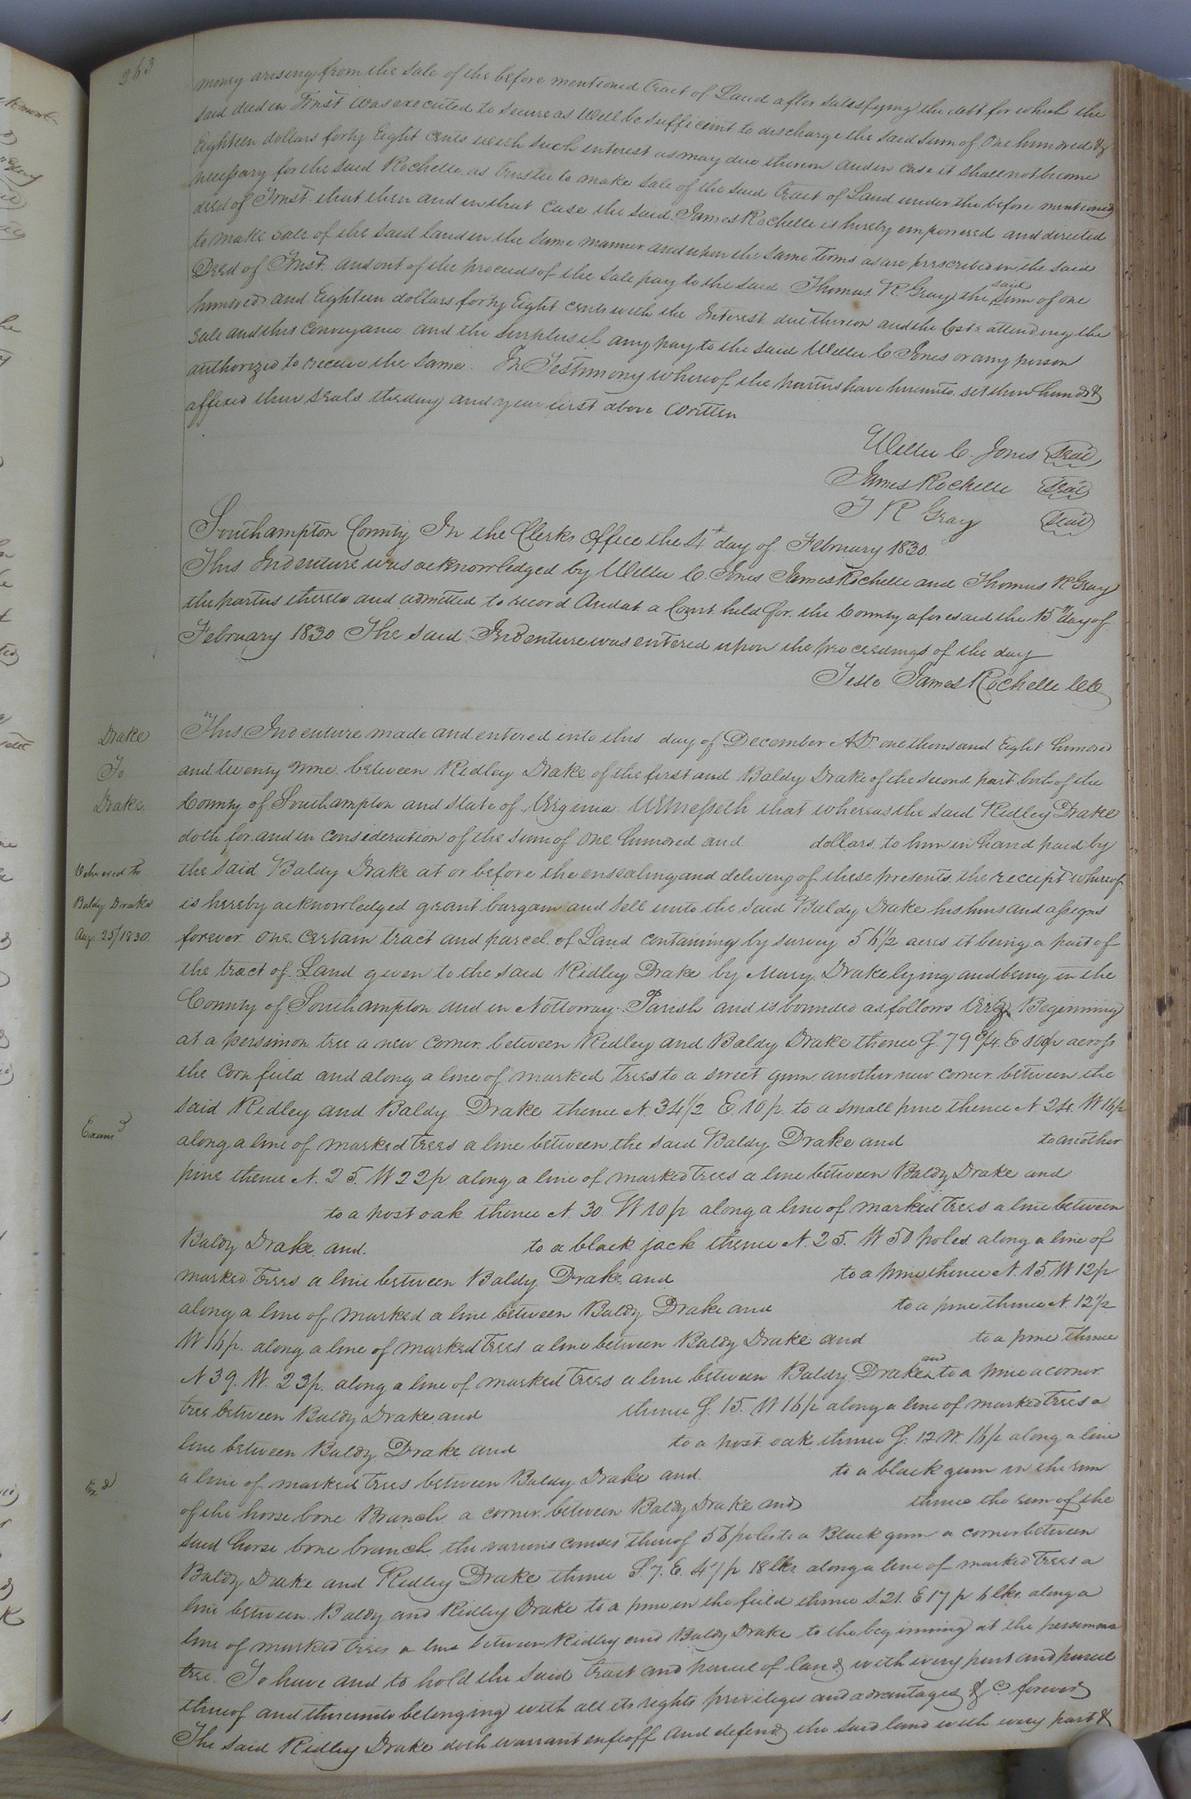 263
money arising from the sale of the before mentioned tract of Land after satisfying the debt for which the
said deed in Trust was executed to secure as will be sufficient to discharge the said sum of One hundred &
Eighteen dollars forty Eight Cents with such interest as may due thereon and in case it shall not become
necessary for the said Rochelle as trustee to make sale of the said tract of Land under the before mentioned
deed of Trust that then and in that case the said James Rochelle is hereby empowered and directed
to make sale of the said land in the same manner and upon the same terms as are prescribed in the said
Deed of Trust and out of the proceeds of the sale pay to the said Thomas R Gray the said sum of one
hundred and Eighteen dollars forty Eight cents with the Interest due thereon and the Costs attending the
sale and this conveyance and the surplus if any pay to the said Willie C Jones or any person
authorized to receive the same. In Testimony whereof the parties have hereunto set their hands &
affixed their seals the day and year first above written
Willie C. Jones Seal
James Rochelle Seal
T R Gray Seal
Southampton County In the Clerks Office the 4th day of February 1830
This Indenture was acknowledged by Willie C. Jones James Rochelle and Thomas R Gray
the parties thereto and admitted to record And at a Court held for the County aforesaid the 15th day of
February 1830 The said Indenture was entered upon the proceedings of the day
Teste James Rochelle CC
Drake
To
Drake
Delivered to
Baldy Drake
Aug. 25/1830
This Indenture made and entered into this day of December AD one thousand Eight hundred
and twenty nine between Ridley Drake of the first and Baldy Drake of the second part both of the
County of Southampton and state of Virginia Witnesseth that whereas the said Ridley Drake
doth for and in consideration of the sum of one hundred and dollars to him in hand paid by
the said Baldy Drake at or before the ensealing and delivery of these presents the receipt whereof
is hereby acknowledged grant bargain and sell unto the said Baldy Drake his heirs and assigns
forever one certain tract and parcel of Land containing by survey 56 1/2 acres it being a part of
the tract of Land given to the said Ridley Drake by Mary Drake lying and being in the
County of Southampton and in Nottoway Parish and is bounded as follows Beginning
at a persimon tree a new corner between Ridley and Baldy Drake thence S 79 3/4 E across
the Corn field and along a line of marked trees to a sweet gum another new corner between the
said Ridley and Baldy Drake thence N 34 1/2 E 10 p to a small pine thence N 24 W 16p
Exame'd
along a line of marked trees a line between the said Baldy Drake and to another
pine thence N. 25. W 22p along a line of marked trees a line between Baldy Drake and
to a post oak thence N. 30 W 10 p along a line of marked trees a line between
Baldy Drake and to a black jack thence N. 25. W 50 poles along a line of
marked trees a line between Baldy Drake and to a pine thence N. 15. W 12p
along a line of marked a line between Baldy Drake and to a pine thence N. 12 1/2
W 16p. along a line of marked trees a line between Baldy Drake and to a pine thence
N 39. W. 23p. along a line of marked trees a line between Baldy Drake and to a pine a corner
tree between Baldy Drake and thence S. 15. W 16p along a line of marked trees a
line between Baldy Drake and to a post oak thence S. 12 W. 16p along a line
Ex d
a line of marked trees between Baldy Drake and to a black gum in the run
of the horse bone Branch a corner between Baldy Drake and thence the run of the
said horse bone branch the various courses thereof 56 poles to a Black gum a corner between
Baldy Drake and Ridley Drake thence S 7. E. 47 p 18 lks along a line of marked trees a
line between Baldy and Ridley Drake to a pine in the field thence S. 21. E 17 p 6 lks. along a
line of marked trees a line between Ridley and Baldy Drake to the beginning at the persimmon
tree. To have and to hold the said tract and parcel of land with every part and parcel
thereof and thereunto belonging with all its rights privileges and advantages &c forever
The said Ridley Drake doth warrant enfeoff and defend the said land with every part &